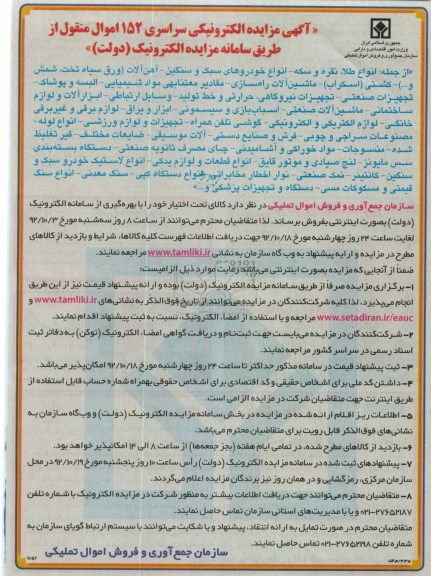 جمهوری اسلامی ایران
وزارت امور اقتصادی و دارایی
سازمان جمع‌آوری و فروش اموال تملیکی
«آگهی مزایده الکترونیکی سراسری ۱۵۲ اموال منقول از
طریق سامانه مزایده الکترونیک (دولت)»
«از جمله: انواع طلا، نقره و سکه- انواع خودروهای سبک و سنگین- آهن‌آلات (ورق سیاه تخت، شمش
و..)- کشتی (اسکراپ)- ماشین‌آلات راهسازی- مقادیر معتنابهی مواد شیمیایی- البسه و پوشاک-
تجهیزات صنعتی- تجهیزات نیروگاهی، حرارتی و خط تولید- وسایل ارتباطی- ابزارآلات و لوازم
ساختمانی- ماشین‌آلات صنعتی- اسباب‌بازی و سیسمونی- ابزار و یراق- لوازم برقی و غیربرقی
خانگی- لوازم الکتریکی و الکترونیکی- گوشی تلفن همراه- تجهیزات و لوازم ورزشی- انواع لوله-
مصنوعات سراجی و چوبی- فرش و صنایع دستی- آلات موسیقی- ضایعات مختلف- قیر تغلیظ
شده- منسوجات- مواد خوراکی و آشامیدنی- چای مصرف ثانویه صنعتی- دستگاه بسته‌بندی
سس مایونز- لنج صیادی و موتور قایق- انواع قطعات و لوازم یدکی- انواع لاستیک خودرو سبک و
سنگین- کانتینر- نمک صنعتی- نوار اخطار مخابراتی- انواع دستگاه کپی- سنگ معدنی- انواع سنگ
قیمتی و مسکوکات مسی- دستگاه و تجهیزات پزشکی و...»
سازمان جمع‌آوری و فروش اموال تملیکی در نظر دارد کالای تحت اختیار خود را با بهره‌گیری از سامانه الکترونیک
(دولت) بصورت اینترنتی بفروش برساند. لذا متقاضیان محترم می‌توانند از ساعت ۸ روز سه‌شنبه مورخ ۹۲/۱۰/۳
لغایت ساعت ۲۴ روز چهارشنبه مورخ ۹۲/۱۰/۱۸ جهت دریافت اطلاعات فهرست کلیه کالاها، شرایط و بازدید از کالاهای
مطرح در مزایده و ارایه پیشنهاد به وب گاه سازمان به نشانی www.tamliki.ir مراجعه نمایند.
ضمنا از آنجایی که مزایده بصورت اینترنتی می‌باشد رعایت موارد ذیل الزامیست:
۱- برگزاری مزایده صرفا از طریق سامانه مزایده الکترونیک (دولت) بوده و ارائه پیشنهاد قیمت نیز از این طریق
انجام می‌پذیرد، لذا کلیه شرکت‌کنندگان در مزایده می‌توانند از تاریخ فوق‌الذکر به نشانی‌های www.tamliki.ir و
www.setadiran.ir/eauc مراجعه و با استفاده از امضاء الکترونیک، نسبت به ثبت پیشنهاد اقدام نمایند.
۲- شرکت‌کنندگان در مزایده می‌بایست جهت ثبت‌نام و دریافت گواهی امضاء الکترونیک (توکن) به دفاتر ثبت
اسناد رسمی در سراسر کشور مراجعه نمایند.
۳- ثبت پیشنهاد قیمت در سامانه مذکور حداکثر تا ساعت ۲۴ روز چهارشنبه مورخ ۹۲/۱۰/۱۸ امکان‌پذیر می‌باشد.
۴- داشتن کد ملی برای اشخاص حقیقی و کد اقتصادی برای اشخاص حقوقی بهمراه شماره حساب قابل استفاده از
طریق اینترنت جهت متقاضیان شرکت در مزایده الزامی است.
۵- اطلاعات ریز اقلام ارائه شده در مزایده در بخش سامانه مزایده الکترونیک (دولت) و وب‌گاه سازمان به
نشانی‌های فوق‌الذکر قابل رویت برای متقاضیان محترم می‌باشد.
۶- بازدید از کالاهای مطرح شده، در تمامی ایام هفته (بجز جمعه‌ها) از ساعت ۸ الی ۱۴ امکانپذیر خواهد بود.
۷- پیشنهادهای ثبت شده در سامانه مزایده الکترونیک (دولت) رأس ساعت ۱۰ روز پنجشنبه مورخ ۹۲/۱۰/۱۹ در محل
سازمان مرکزی، رمزگشایی و در همان روز نیز برندگان مزایده اعلام می‌گردند.
۸- متقاضیان محترم می‌توانند جهت دریافت اطلاعات بیشتر به منظور شرکت در مزایده الکترونیک با شماره تلفن
۰۲۱-۲۷۶۵۲۱۸۷ و یا با مدیریت‌های استانی سازمان تماس حاصل نمایند.
متقاضیان محترم در صورت تمایل به ارائه انتقاد، پیشنهاد و یا شکایت می‌توانند با سیستم ارتباط گویای سازمان به
شماره تلفن ۲۷۶۵۲۱۹۸-۰۲۱ تماس حاصل نمایند.
سازمان جمع‌آوری و فروش اموال تملیکی